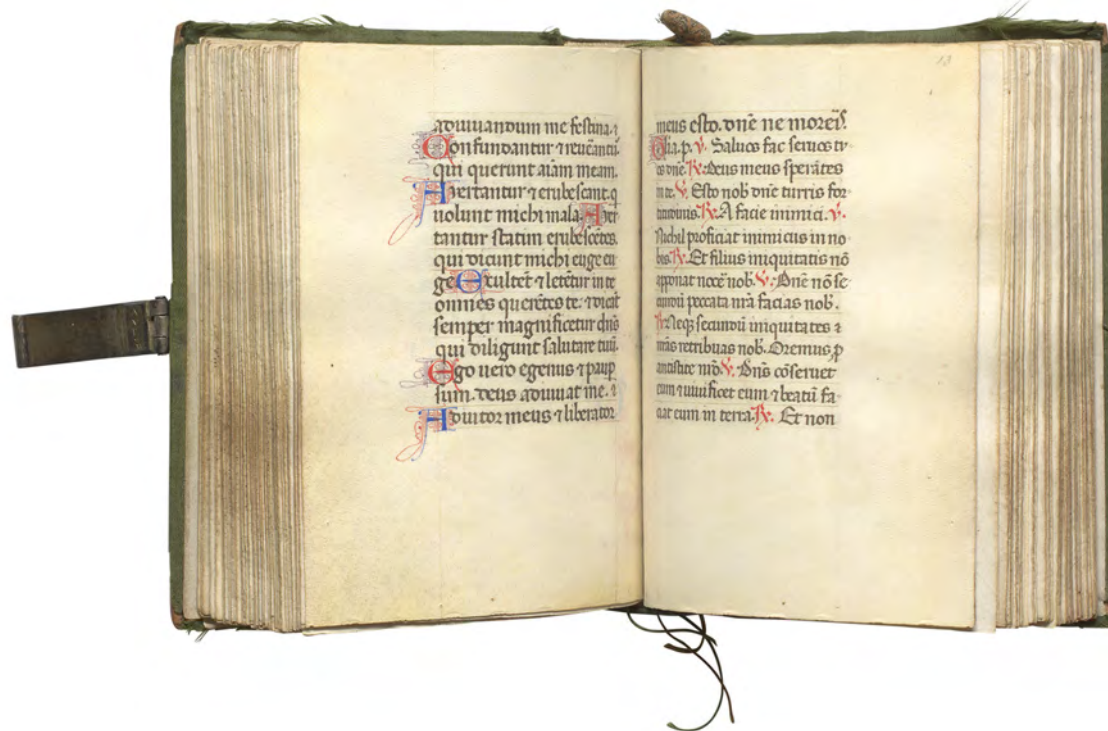 adiuuandum me festina. ⁊
Confundantur ⁊ reueāntũ.
qui querunt aīam meam.
Auertantur ⁊ erubescant. q̇
uolunt michi mala. Auer
tantur statim erubescētes.
qui dicunt michi euge eu
ge. Exultēt ⁊ letētur in te
omnes querētes te: ⁊ dicāt
semper magnificetur dn̄s
qui diligunt salutare tuũ.
Ego uero egenus ⁊ paup̲
sum. deus adiuuat me. ⁊
Adiutor meus ⁊ liberator
meus esto. dn̄e ne moreīs.
Gl̄ia. p. V. Saluos fac seruos tu
os dn̄e. R. Deus meus sperātes
in te. V. Esto nob̄ dn̄e turris for
titudinis. R. A facie inimici. V.
Nichil proficiat inimicus in no
bis. R. Et filius iniquitatis nō
apponat nocē nob̄. V. Dn̄e nō se
cundũ peccata nr̄a facias nob̄.
R. Neqȝ secundũ iniquitates ⁊
nr̄as retribuas nob̄. Oremus, ꝓ
antistite nr̄o V. Dn̄s cōseruet
eum ⁊ uiuificet eum ⁊ beatũ fa
ciat eum in terra. R. Et non